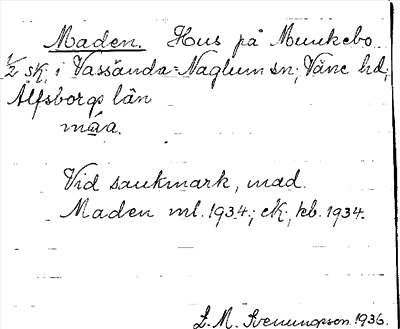 Maden. Hus på Munkebo
1/2 sk. i Vassända-Naglum sn; Väne hd;
Älfsborgs län
måa.
Vid sankmark, mad.
Maden ml. 1934; ek; kb. 1934.
L. M. Svenungsson 1936.